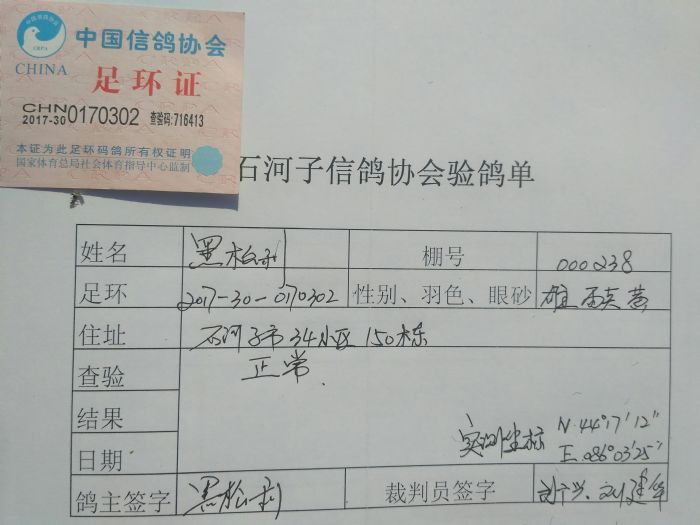 中国信鸽协会
CRPA
CHINA
足环证
CHN
2017-30 0170302 查验码:716413
本证为此足环码鸽所有权证明
国家体育总局社会体育指导中心监制
石河子信鸽协会验鸽单
姓名 黑松利 棚号 000238
足环 2017-30-0170302 性别、羽色、眼砂 雄 黄
住址 石河子市34小区150栋
查验 正常
结果
实测坐标 N.44°17'12"
日期 E.086°03'25"
鸽主签字 黑松利 裁判员签字 刘建华